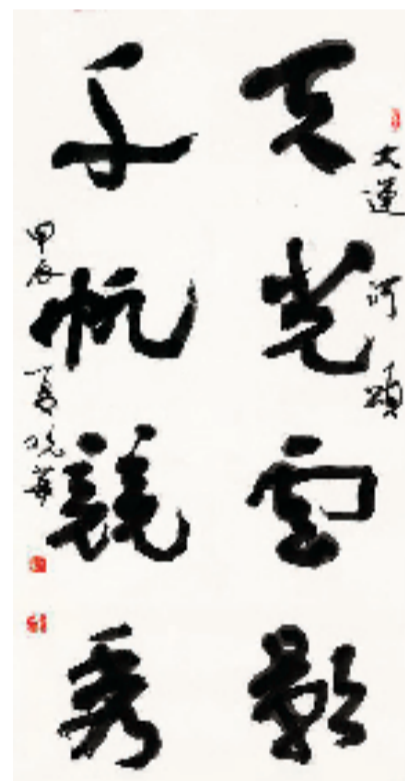 天光雲影
千帆競秀
大運河頌
甲辰
曉華